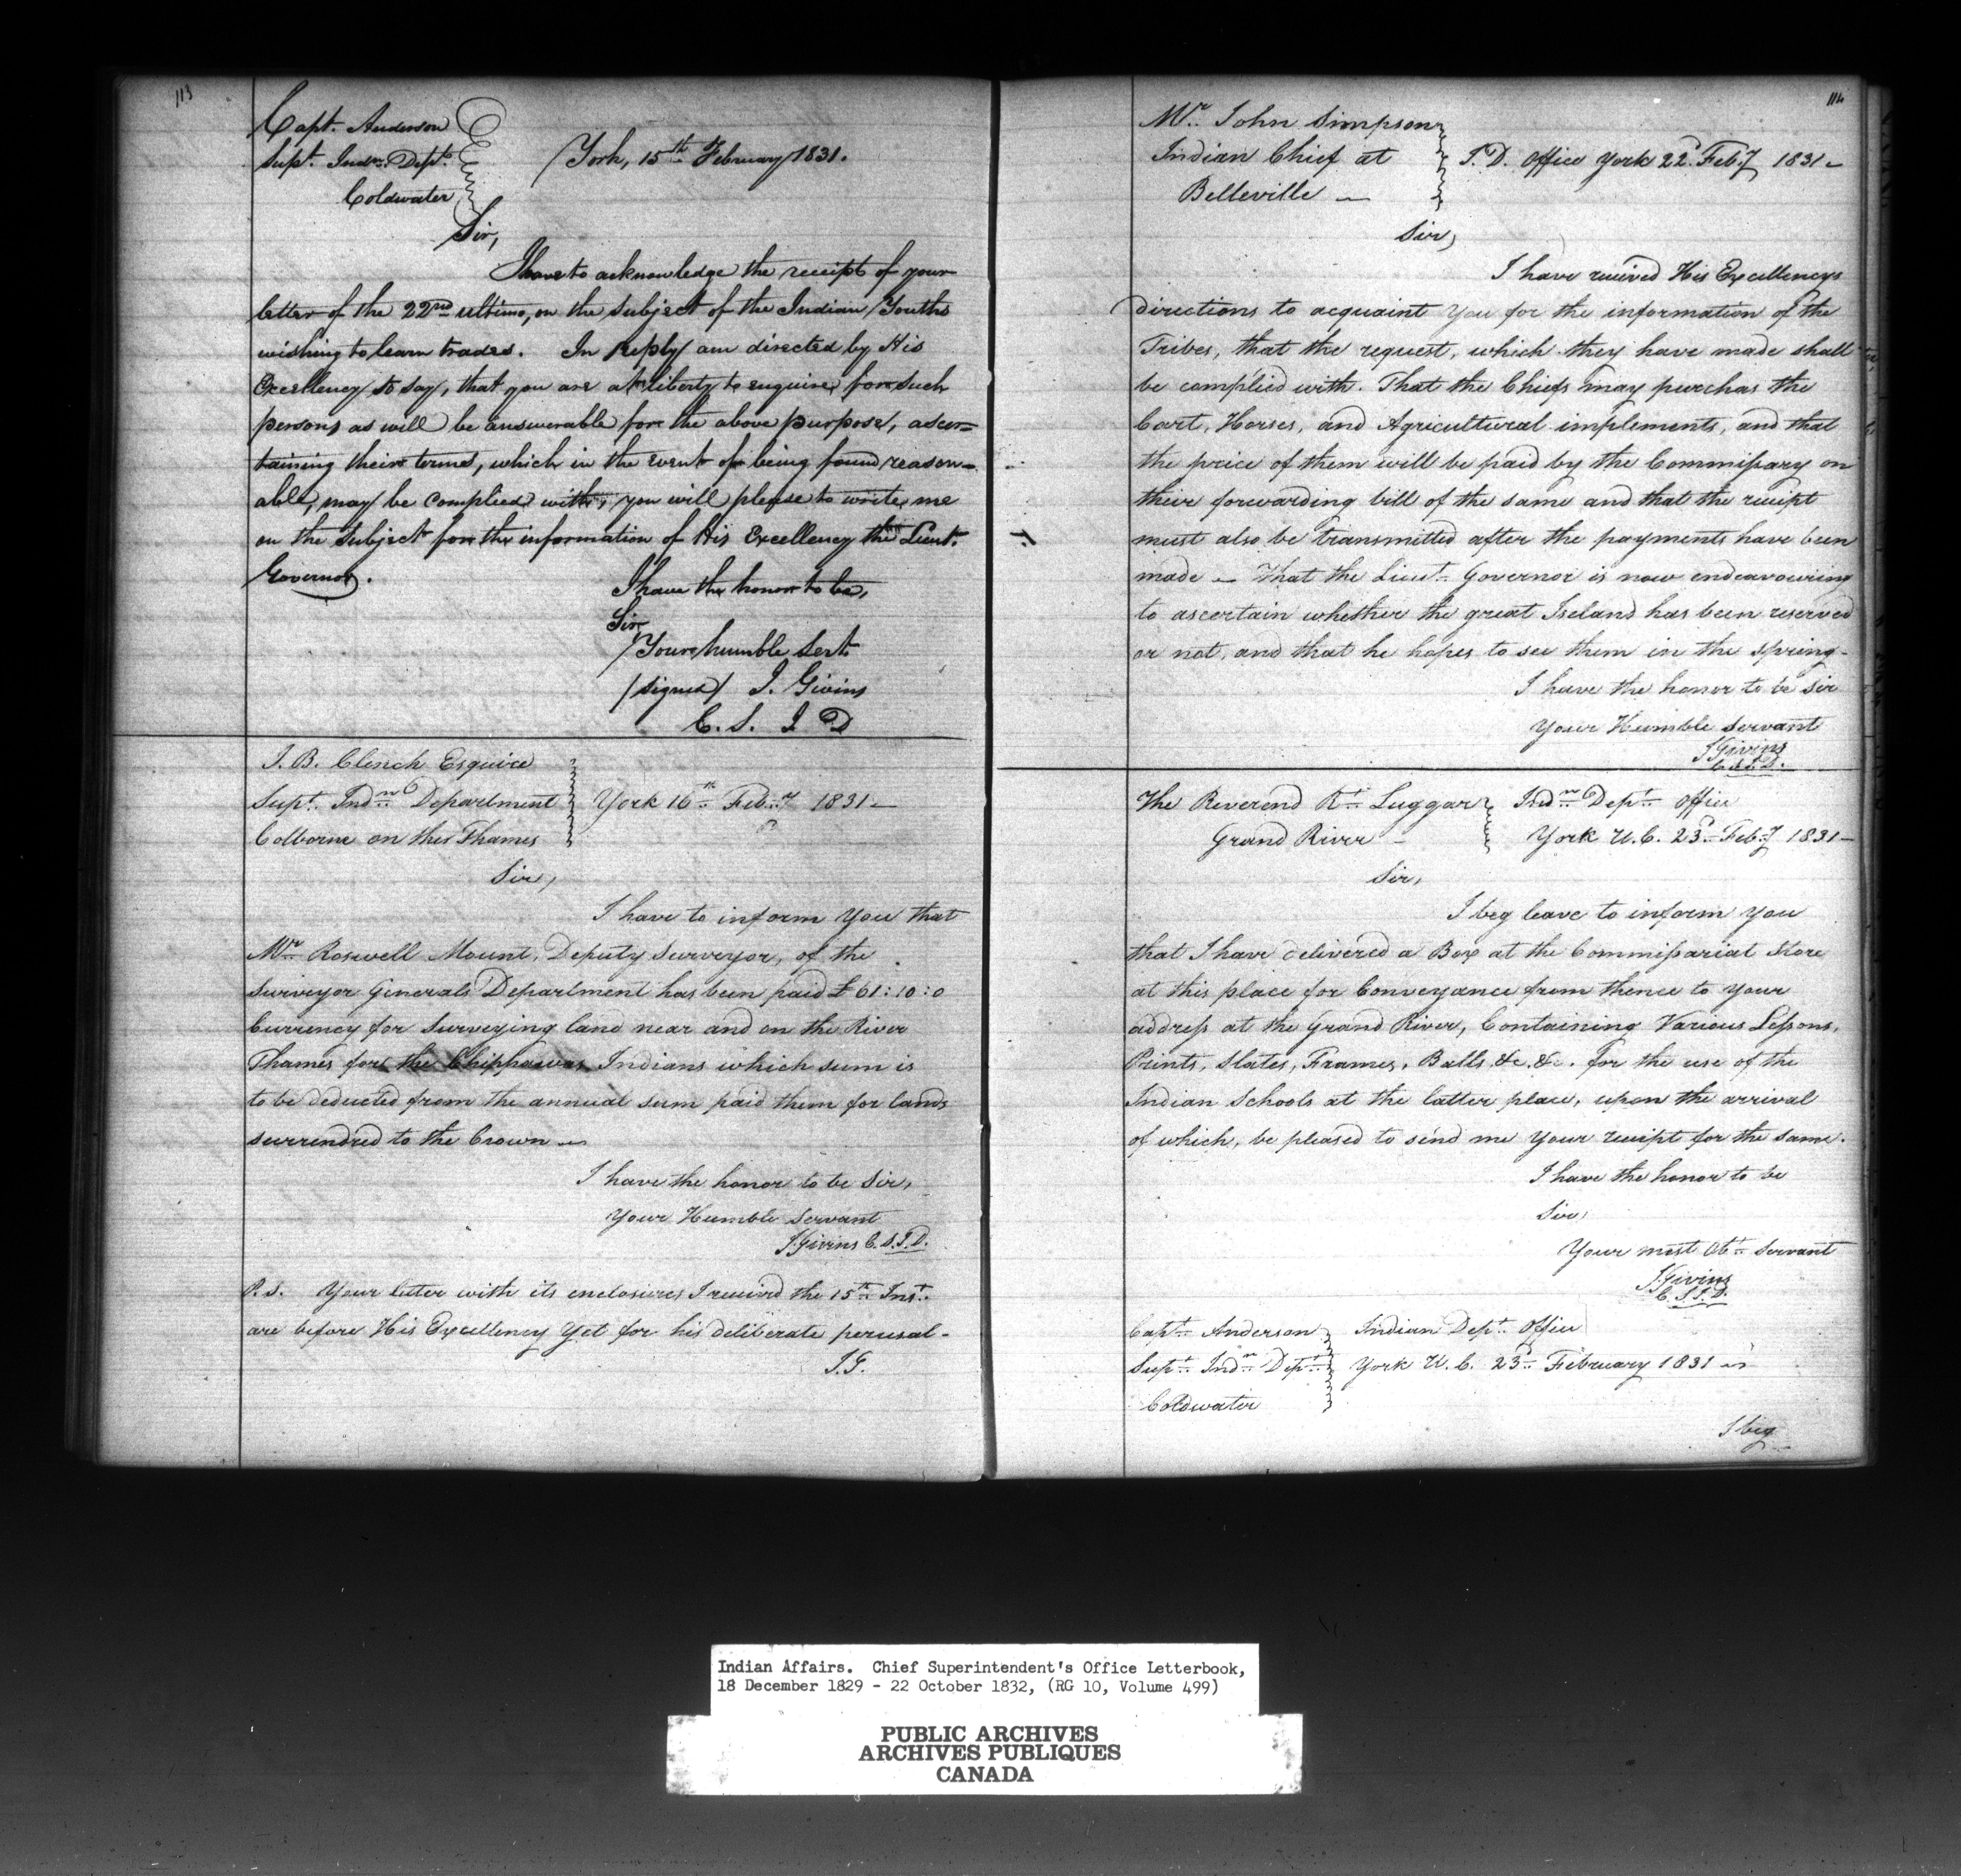 113
Capt. Anderson
Supt. Indn. Dept.
Coldwater
York, 15th February 1831.
Sir,
I have to acknowledge the receipt of your
letter of the 22nd ultimo, on the subject of the Indian Youths
wishing to learn trades. In reply I am directed by His
Excellency to say, that you are at liberty to enquire for such
persons as will be answerable for the above purpose, ascer=
taining their terms, which in the event of being found reason=
able, may be complied with; you will please to write me
on the subject for the information of His Excellency the Lieut.
Governor.
I have the honor to be,
Sir
Your humble Sert.
/signed/ J. Givins
C. S. I D
J. B. Clench Esquire
Supt. Indn. Department
Colborne on the Thames
York 16th Feby 1831 —
Sir,
I have to inform You that
Mr. Roswell Mount, Deputy Surveyor, of the
Surveyor Generals Department has been paid £61:10:0
Currency for Surveying land near and on the River
Thames for the Chippawas Indians which sum is
to be deducted from the annual sum paid them for lands
surrendred to the Crown —
I have the honor to be Sir,
Your Humble Servant
J. Givins C.S.I.D.
P.S. Your letter with its enclosures I received the 15th Inst.
are before His Excellency Yet for his deliberate perusal -
J.G.
114
Mr. John Simpson
Indian Chief at
Belleville —
I.D. Office York 22d Feby 1831 —
Sir,
I have received His Excellencys
directions to acquaint You for the information of the
Tribes, that the request, which they have made shall
be complied with. That the Chiefs may purchas the
Cart, Horses, and Agricultural implements, and that
the price of them will be paid by the Commissary on
their forwarding bill of the same and that the receipt
must also be transmitted after the payments have been
made — That the Lieut. Governor is now endeavouring
to ascertain whether the great Iseland has been reserved
or not, and that he hopes to see them in the spring -
I have the honor to be Sir
Your Humble Servant
J Givins
C.S.I.D.
The Reverend Rt. Luggar
Grand River -
Indn. Dept. Office
York U.C. 23d Feby 1831 —
Sir,
I beg leave to inform you
that I have delivered a Box at the Commissariat Store
at this place for Conveyance from thence to Your
address at the Grand River, Containing Various Lessons,
Prints, Slates, Frames, Balls &c. &c. for the use of the
Indian Schools at the latter place, upon the arrival
of which, be pleased to send me Your receipt for the same.
I have the honor to be
Sir,
Your most Obt. Servant
J. Givins
C.S.I.D.
Capt. Anderson
Supt. Indn. Dept.
Coldwater
Indian Dept. Office
York U.C. 23d February 1831 —
I beg
Indian Affairs. Chief Superintendent's Office Letterbook,
18 December 1829 - 22 October 1832, (RG 10, Volume 499)
PUBLIC ARCHIVES
ARCHIVES PUBLIQUES
CANADA